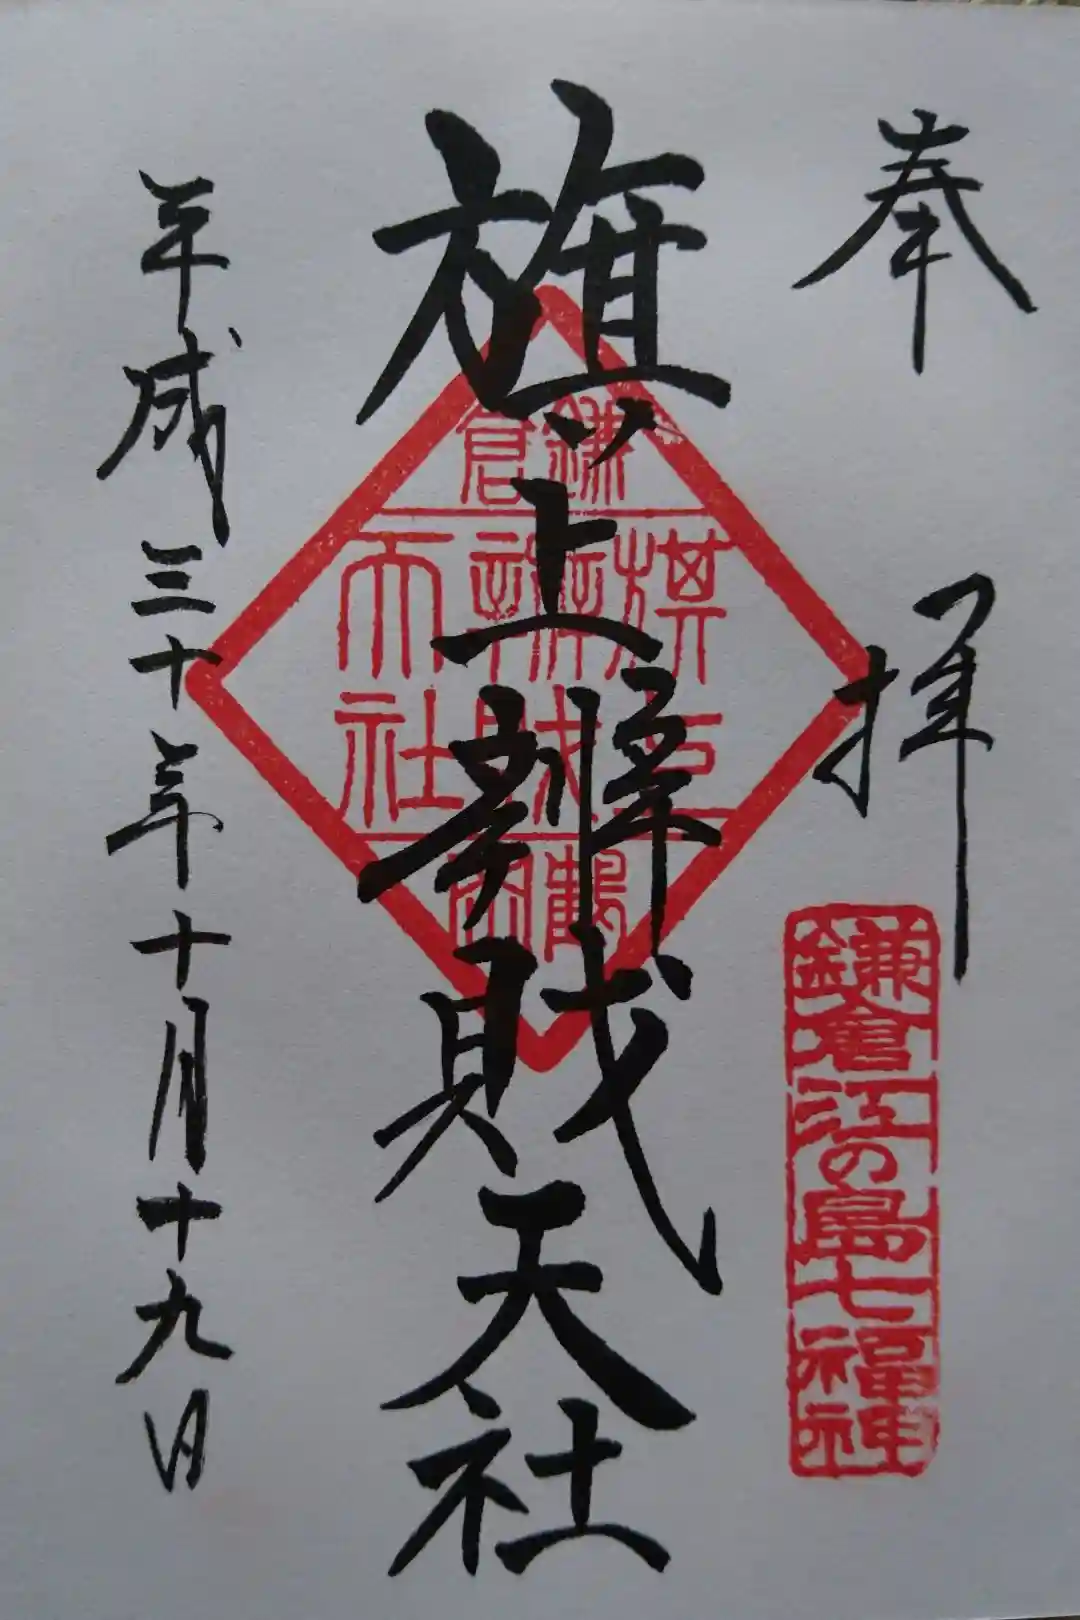 奉拝
鎌倉江の島七福神
旗上辨財天社
鎌倉
旗上
辨財
天社
鶴岡
平成三十年十月十九日